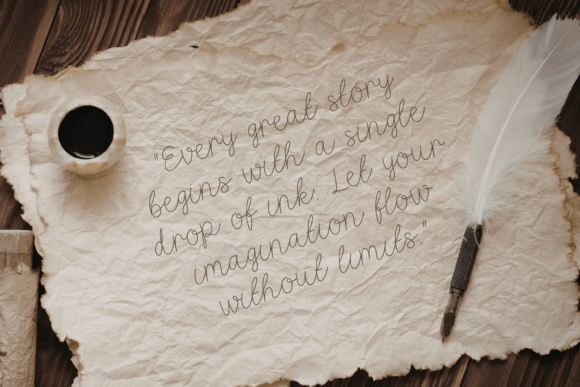 "Every great story
begins with a single
drop of ink. Let your
imagination flow
without limits."